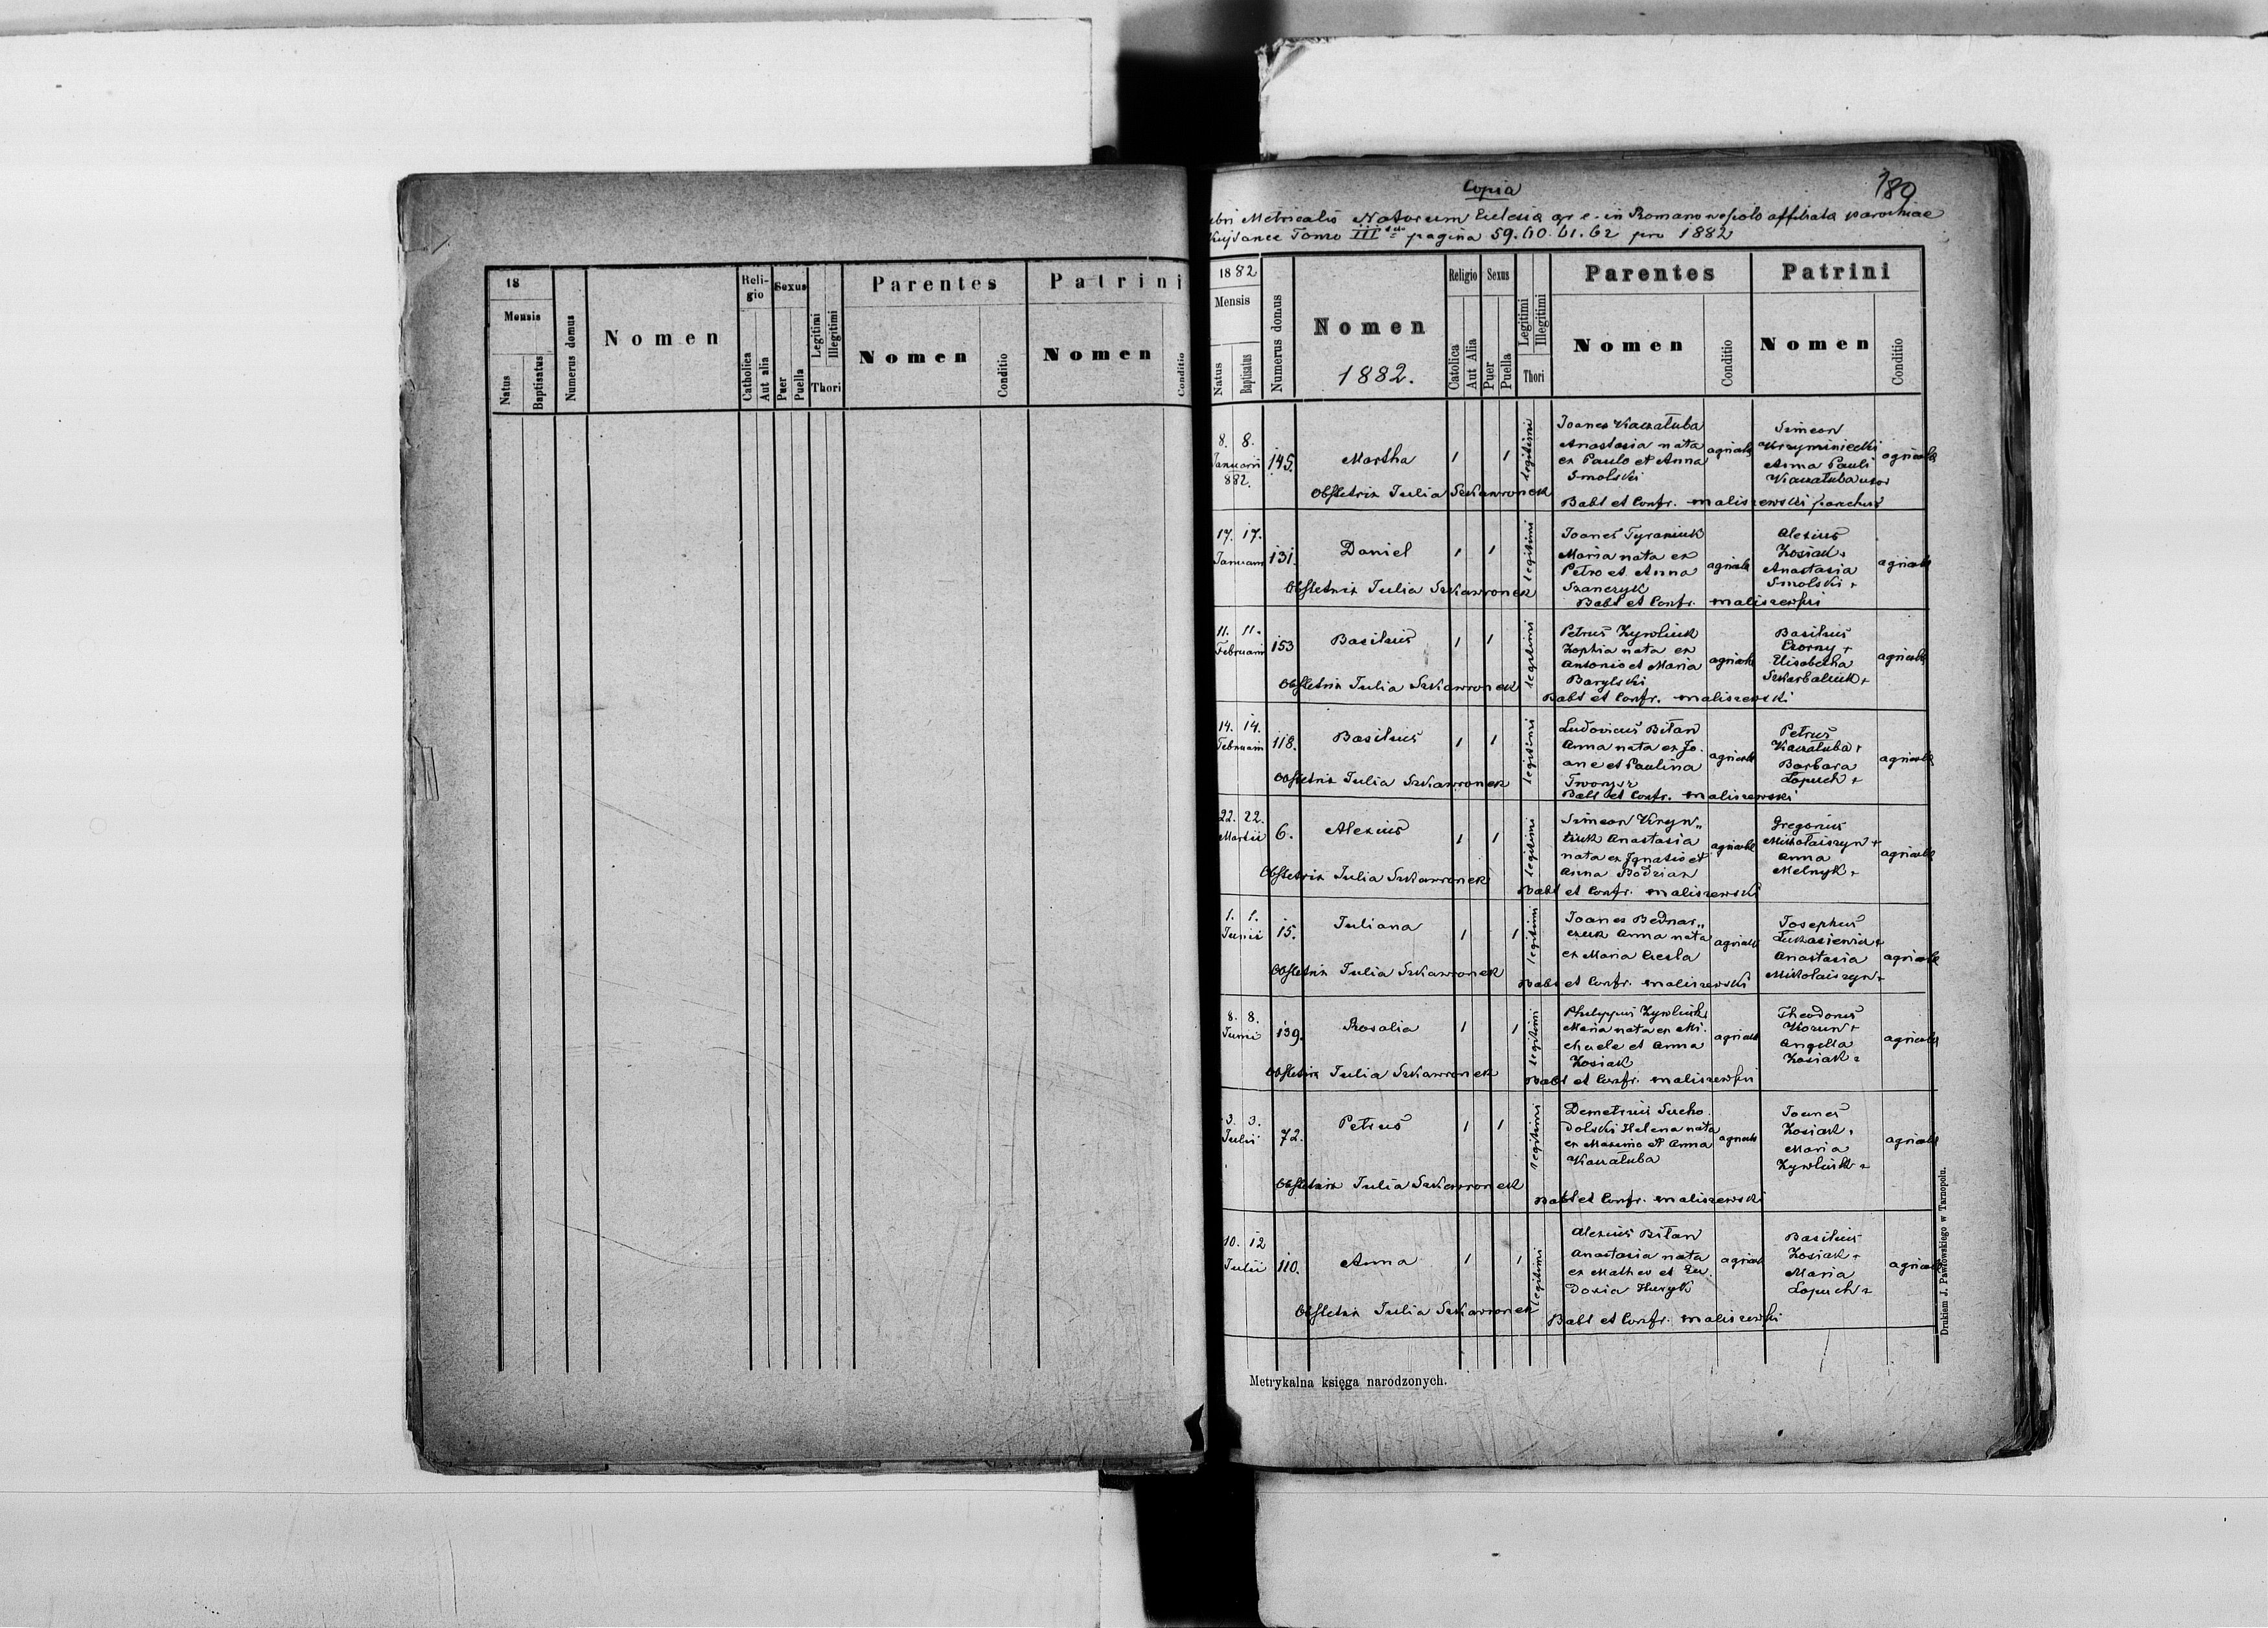 18
Mensis
Natus
Baptisatus
Numerus domus
Nomen
Reli-
gio
Catholica
Aut alia
Sexus
Puer
Puella
Legitimi
Illegitimi
Thori
Parentes
Nomen
Conditio
Patrini
Nomen
Conditio
Copia
180
Metricalis Natorum Eclesia gr c. in Romanowesiolo affiliata parochiae
Tomo III pagina 59. 60. 61. 62 pro 1882
1882
Mensis
Natus
Baptisatus
Numerus domus
Nomen
1882.
Religio
Catolica
Aut Alia
Sexus
Puer
Puella
Legitimi
Illegitimi
Thori
Parentes
Nomen
Conditio
Patrini
Nomen
Conditio
8. 8.
Januarii
882.
145.
Martha
1 1
legitimi
Joanes Kaczałuba
Anastasia nata
ex Paulo et Anna
Smolski
agricola
Simeon
Krzyminiecki
Anna Pauli
Kaczałuba uxor
agricola
Obstetrix Julia Szkawronek
Babt et Confr. Maliszewski parochus
17. 17.
Januarii
131.
Daniel
1 1
legitimi
Joanes Tyraniuk
Maria nata ex
Petro et Anna
Szanczyk
agricola
Alexius
Kosiak +
Anastasia
Smolski +
agricola
Obstetrix Julia Szkawronek
Babt et Confr. Maliszewski
11. 11.
Februarii
153
Basilius
1 1
legitimi
Petrus Zywliuk
Zophia nata ex
Antonio et Maria
Barylski
agricola
Basilius
Czorny +
Elisabetha
Szkarbaliuk +
agricola
Obstetrix Julia Szkawronek
Babt et Confr. Maliszewski
14. 14.
Februarii
118.
Basilius
1 1
legitimi
Ludovicus Biłan
Anna nata ex Jo.
ane et Paulina
agricola
Petrus
Kaczałuba +
Barbara
Łopuch +
agricola
Obstetrix Julia Szkawronek
Babt et Confr. Maliszewski
22. 22.
Martii
6.
Alexius
1 1
legitimi
Simeon Kryn„
Anastasia
nata ex Ignatio et
Anna Bodzian
agricola
Gregorius
Mikołaiszyn +
Anna
Melnyk +
agricola
Obstetrix Julia Szkawronek
Babt et Confr. Maliszewski
1. 1.
Junii
15.
Juliana
1 1
legitimi
Joanes Bednar„
czuk Anna nata
ex Maria Ciesla
agricola
Josephus
Łukasiewicz +
Anastasia
Mikołaiszyn +
agricola
Obstetrix Julia Szkawronek
Babt et Confr. Maliszewski
8. 8.
Junii
139.
Rosalia
1 1
legitimi
Philippus Zywliuk
Maria nata ex Mi.
chaele et Anna
Kosiak
agricola
Theodorus
Korun +
Angella
Kosiak +
agricola
Obstetrix Julia Szkawronek
Babt et Confr. Maliszewski
3. 3.
Julii
72.
Petrus
1 1
legitimi
Demetrius Sucho.
dolski Helena nata
ex Maximo et Anna
Kaczałuba
agricola
Joanes
Kosiak +
Maria
Zywliuk +
agricola
Obstetrix Julia Szkawronek
Babt et Confr. Maliszewski
10. 12
Julii
110.
Anna
1 1
legitimi
Alexius Biłan
Anastasia nata
ex Matheo et Eu.
doxia Huryk
agricola
Basilius
Kosiak +
Maria
Łopuch +
agricola
Obstetrix Julia Szkawronek
Babt et Confr. Maliszewski
Metrykalna księga narodzonych.
Drukiem J. Pawłowskiego w Tarnopolu.